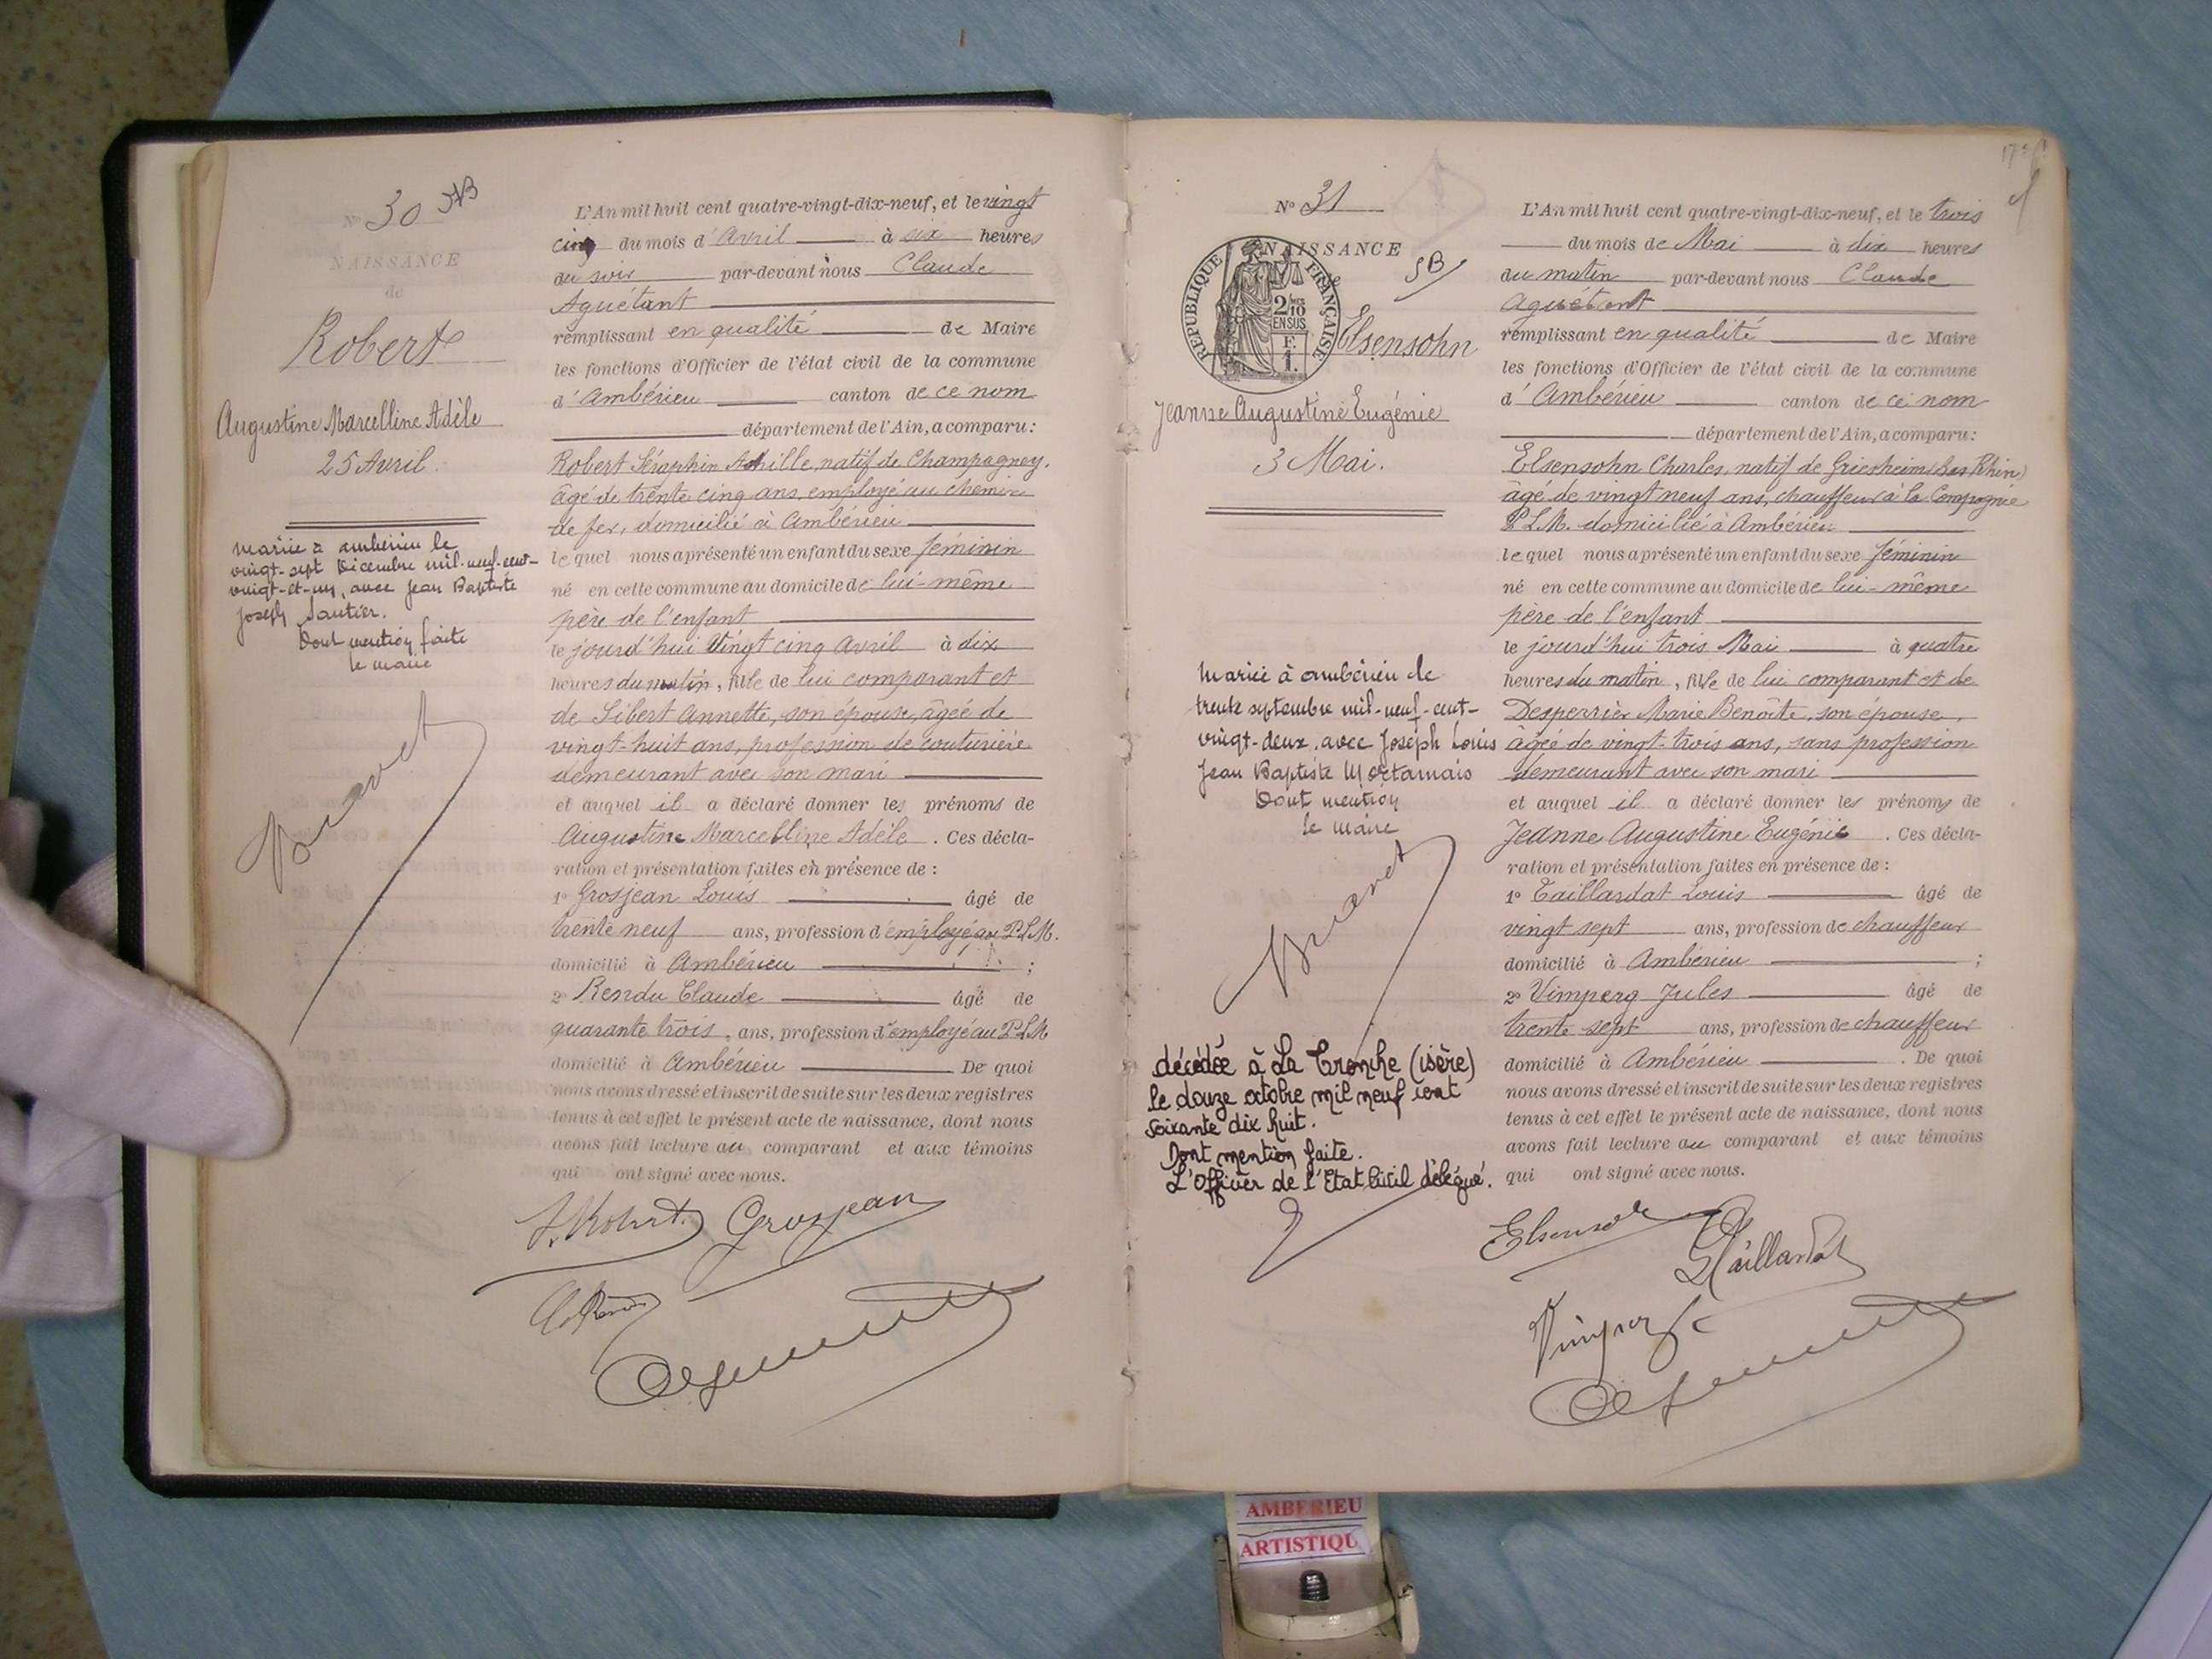 N° 30
NAISSANCE
de
Robert
Augustine Marcelline Adèle
25 Avril.
mariée à ambérieu le
vingt-sept Décembre mil-neuf-cent-
vingt-et-un, avec Jean Baptiste
Joseph Sautier.
Dont mention faite
le maire
L'An mil huit cent quatre-vingt-dix-neuf, et le vingt
cinq du mois d'Avril à six heures
du soir par-devant nous Claude
Aguétant
remplissant en qualité de Maire
les fonctions d'Officier de l'état civil de la commune
d'Ambérieu canton de ce nom
département de l'Ain, a comparu:
Robert Séraphin Achille, natif de Champagney,
âgé de trente cinq ans, employé au chemin
de fer, domicilié à Ambérieu
le quel nous a présenté un enfant du sexe féminin
né en cette commune au domicile de lui-même
père de l'enfant
le jourd'hui vingt cinq Avril à dix
heures du matin, fille de lui comparant et
de Sibert Annette, son épouse, âgée de
vingt-huit ans, profession de couturière
demeurant avec son mari
et auquel il a déclaré donner les prénoms de
Augustine Marcelline Adèle. Ces décla-
ration et présentation faites en présence de :
1° Grosjean Louis âgé de
trente neuf ans, profession d'employé au P.L.M.
domicilié à Ambérieu ;
2° Rendu Claude âgé de
quarante trois, ans, profession d'employé au P.L.M
domicilié à Ambérieu De quoi
nous avons dressé et inscrit de suite sur les deux registres
tenus à cet effet le présent acte de naissance, dont nous
avons fait lecture au comparant et aux témoins
qui ont signé avec nous.
Robert Grosjean
N° 31
NAISSANCE
RÉPUBLIQUE FRANÇAISE
2/10
EN SUS
F.
1.
Elsensohn
Jeanne Augustine Eugénie
3 Mai.
mariée à ambérieu le
trente septembre mil-neuf-cent-
vingt-deux, avec Joseph Louis
Jean Baptiste Mortamais
Dont mention
le maire
décédée à La Tronche (isère)
le douze octobre mil neuf cent
soixante dix huit.
Dont mention faite.
L'Officier de l'Etat Civil délégué.
L'An mil huit cent quatre-vingt-dix-neuf, et le trois
du mois de Mai à dix heures
du matin par-devant nous Claude
Aguétant
remplissant en qualité de Maire
les fonctions d'Officier de l'état civil de la commune
d'Ambérieu canton de ce nom
département de l'Ain, a comparu:
Elsensohn Charles, natif de Griesheim (bas Rhin)
âgé de vingt neuf ans, chauffeur à la Compagnie
P.L.M. domicilié à Ambérieu
le quel nous a présenté un enfant du sexe féminin
né en cette commune au domicile de lui-même
père de l'enfant
le jourd'hui trois Mai à quatre
heures du matin, fille de lui comparant et de
Desperrier Marie Benoîte, son épouse,
âgée de vingt-trois ans, sans profession
demeurant avec son mari
et auquel il a déclaré donner les prénoms de
Jeanne Augustine Eugénie. Ces décla-
ration et présentation faites en présence de :
1° Taillardat Louis âgé de
vingt sept ans, profession de chauffeur
domicilié à Ambérieu ;
2° Vimperg Jules âgé de
trente sept ans, profession de chauffeur
domicilié à Ambérieu . De quoi
nous avons dressé et inscrit de suite sur les deux registres
tenus à cet effet le présent acte de naissance, dont nous
avons fait lecture au comparant et aux témoins
qui ont signé avec nous.
Taillardat
Vimperg
AMBERIEU
ARTISTIQU